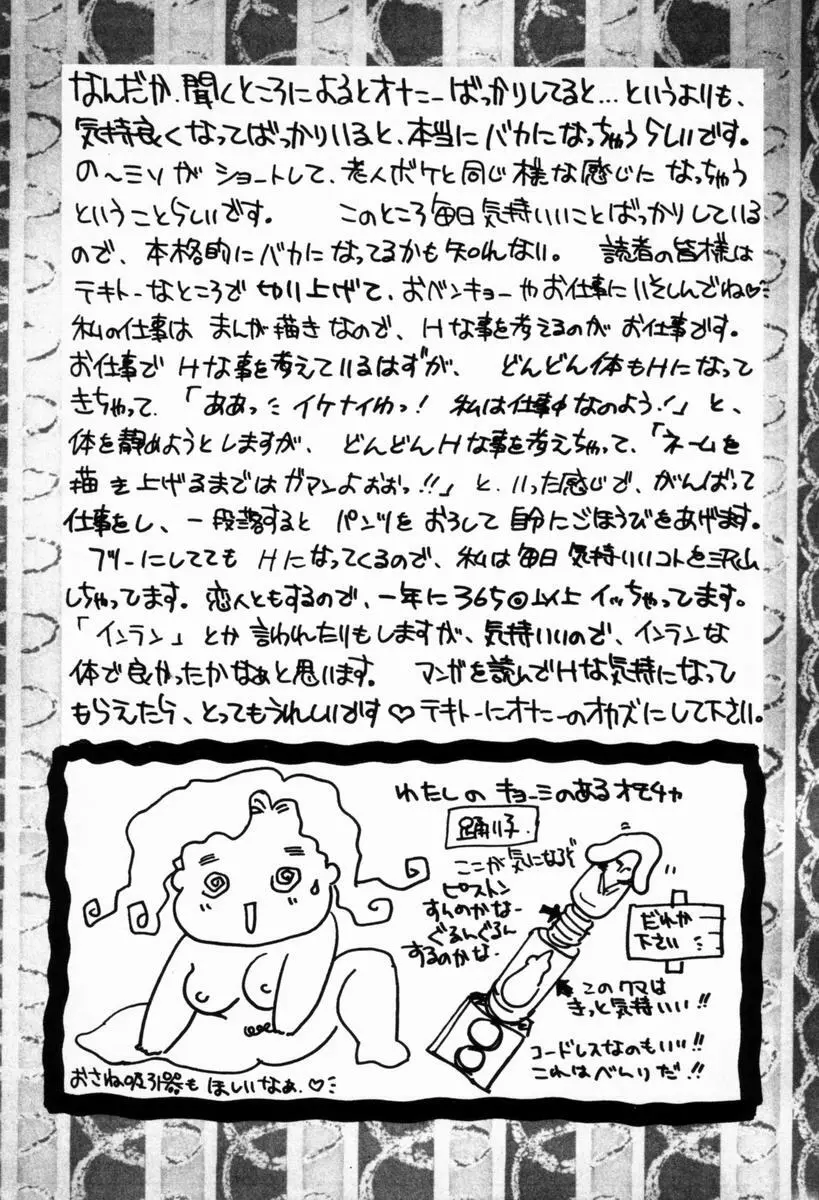 なんだか、聞くところによるとオナニーばっかりしてると…というよりも、
気持良くなってばっかりいると、本当にバカになっちゃうらしいです。
の〜ミソがショートして、老人ボケと同じ様な感じになっちゃう
ということらしいです。 このところ毎日気持いいことばっかりしている
ので、本格的にバカになってるかも知れない。 読者の皆様は
テキトーなところで切り上げて、おベンキョーやお仕事にいそしんでね♡
私の仕事はまんが描きなので、Hな事を考えるのがお仕事です。
お仕事でHな事を考えているはずが、どんどん体もHになって
きちゃって、「ああっイケナイわっ！私は仕事中なのよう！」と、
体を静めようとしますが、どんどんHな事を考えちゃって、「ネームを
描き上げるまではガマンよおおっ!!」と、いった感じで、がんばって
仕事をし、一段落するとパンツをおろして自分にごほうびをあげます。
フツーにしててもHになってくるので、私は毎日気持いいコトを沢山
しちゃってます。恋人ともするので、一年に365回以上イッちゃってます。
「インラン」とか言われたりもしますが、気持いいので、インランな
体で良かったかなぁと思います。 マンガを読んでHな気持になって
もらえたら、とってもうれしいです♡テキトーにオナニーのオカズにして下さい。
わたしのキョーミのあるオモチャ
踊り子
ここが気になるぞ
ピストン
すんのかなー
ぐるんぐるん
するのかな-
だれか
下さい
このクマは
きっと気持いい!!
コードレスなのもいい!!
これはべんりだ!!
おさね吸引器もほしいなぁ.♡